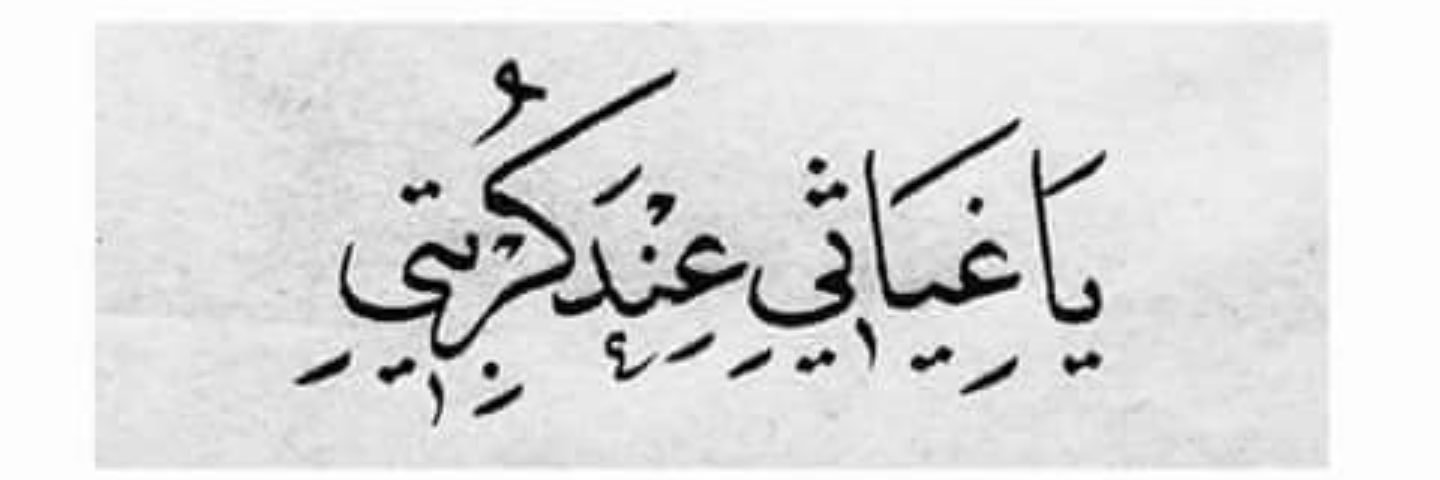 يَا غِيَاثِي عِنْدَ كُرْبَتِي